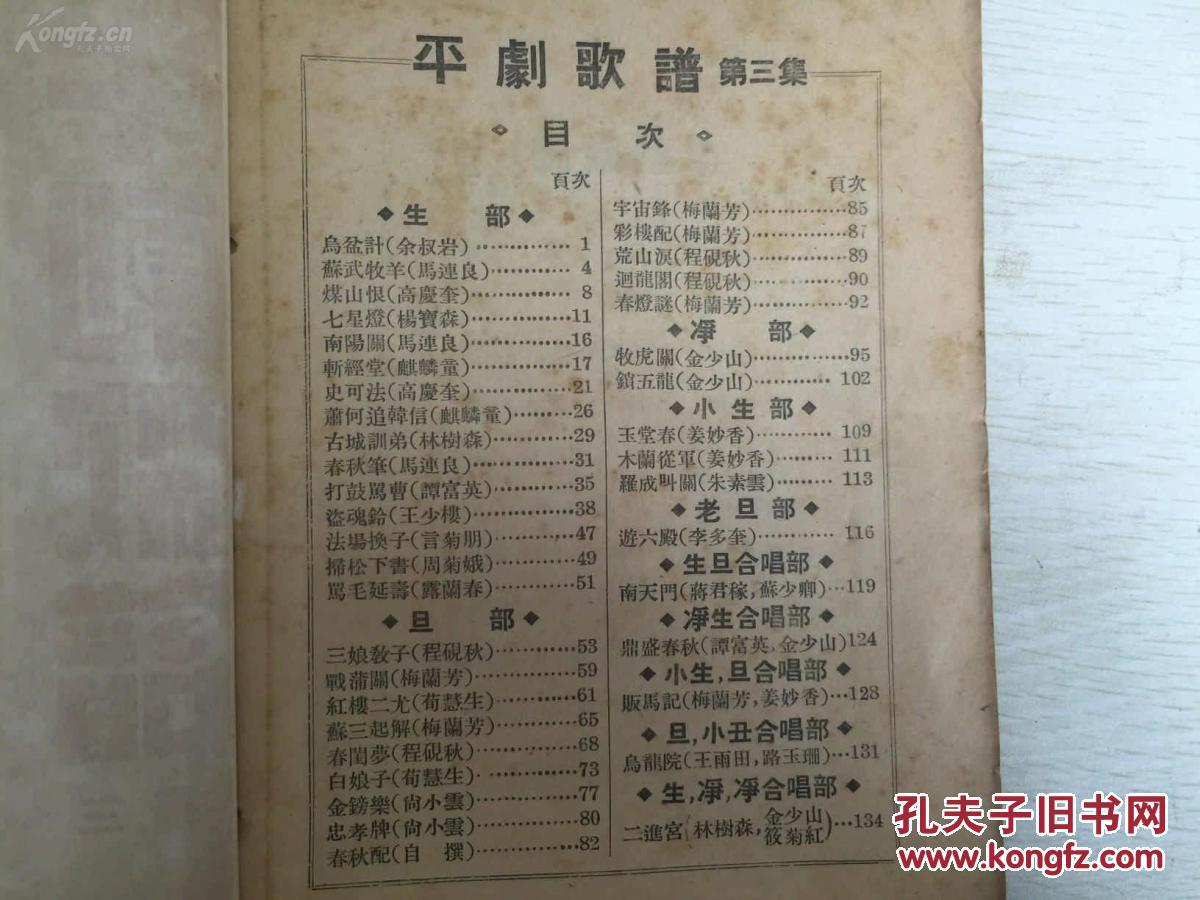 Kongfz.cn
孔夫子拍卖网
平劇歌譜 第三集
目 次
頁次
◆生 部◆
烏盆計(余叔岩)……………1
蘇武牧羊(馬連良)…………4
煤山恨(高慶奎)……………8
七星燈(楊寶森)……………11
南陽關(馬連良)……………16
斬經堂(麒麟童)……………17
史可法(高慶奎)……………21
蕭何追韓信(麒麟童)………26
古城訓弟(林樹森)…………29
春秋筆(馬連良)……………31
打鼓罵曹(譚富英)…………35
盜魂鈴(王少樓)……………38
法場換子(言菊朋)…………47
掃松下書(周菊娥)…………49
罵毛延壽(露蘭春)…………51
◆旦 部◆
三娘教子(程硯秋)…………53
戰蒲關(梅蘭芳)……………59
紅樓二尤(荀慧生)…………61
蘇三起解(梅蘭芳)…………65
春閨夢(程硯秋)……………68
白娘子(荀慧生)……………73
金鎊樂(尙小雲)……………77
忠孝牌(尙小雲)……………80
春秋配(自 撰)……………82
頁次
宇宙鋒(梅蘭芳)……………85
彩樓配(梅蘭芳)……………87
荒山淚(程硯秋)……………89
迴龍閣(程硯秋)……………90
春燈謎(梅蘭芳)……………92
◆凈 部◆
牧虎關(金少山)……………95
鎖五龍(金少山)……………102
◆小生部◆
玉堂春(姜妙香)…………109
木蘭從軍(姜妙香)………111
羅成叫關(朱素雲)………113
◆老旦部◆
遊六殿(李多奎)…………116
◆生旦合唱部◆
南天門(蔣君稼,蘇少卿)…119
◆凈生合唱部◆
鼎盛春秋(譚富英,金少山)124
◆小生,旦合唱部◆
販馬記(梅蘭芳,姜妙香)…128
◆旦,小丑合唱部◆
烏龍院(王雨田,路玉珊)…131
◆生,凈,凈合唱部◆
二進宮(林樹森,金少山 筱菊紅)…134
孔夫子旧书网
www.kongfz.com